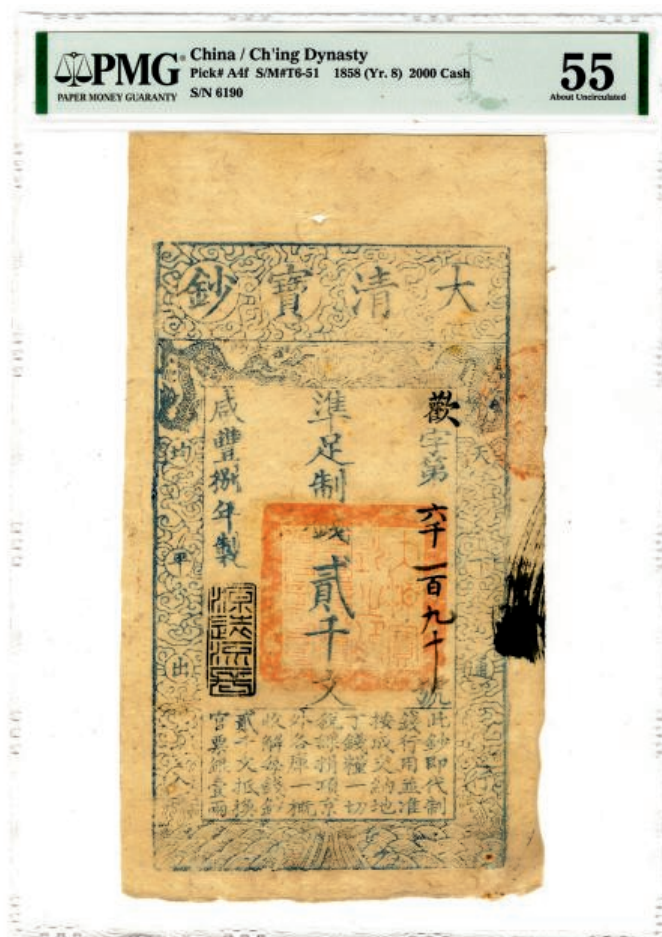 PMG
PAPER MONEY GUARANTY
China / Ch'ing Dynasty
Pick# A4f S/M#T6-51 1858 (Yr. 8) 2000 Cash
S/N 6190
55
About Uncirculated
大清寶鈔
天下通行
均平出入
歡字第六千一百九十號
準足制錢貳千文
咸豐捌年製
此鈔即代制
錢行用並准
按成交納地
丁錢糧一切
稅課捐項京
外各庫一概
收解每錢鈔
貳千文抵換
官票銀壹兩